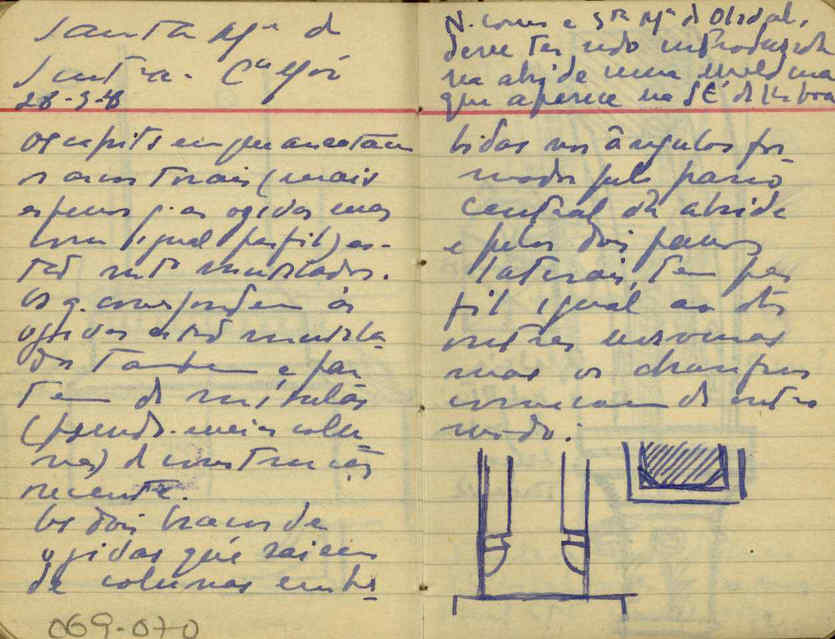 Santa Mª de
Sintra. Cª Mór
28-9-48
Os capiteis em que assentam
(mais
espessos q. as ogivas mas
com igual perfil) es-
tão mtº mutilados.
Os q. correspondem às
ogivas estão mutila-
dos tambem e par-
tem de mísulas
(pseudo-meias colu-
nas) de construção
recente.
Os dois braços de
ogivas que saiem
de colunas embe-
069-070
N. como e Stª Mª do Olival,
deve ter sido introduzida
na abside uma
que aparece na SÉ de Lisboa
bidas nos ângulos for-
mados pelo pano
central da abside
e pelos dois panos
laterais, tem per-
fil igual ao das
outras nervuras
mas os chanfros
começam de outro
modo: